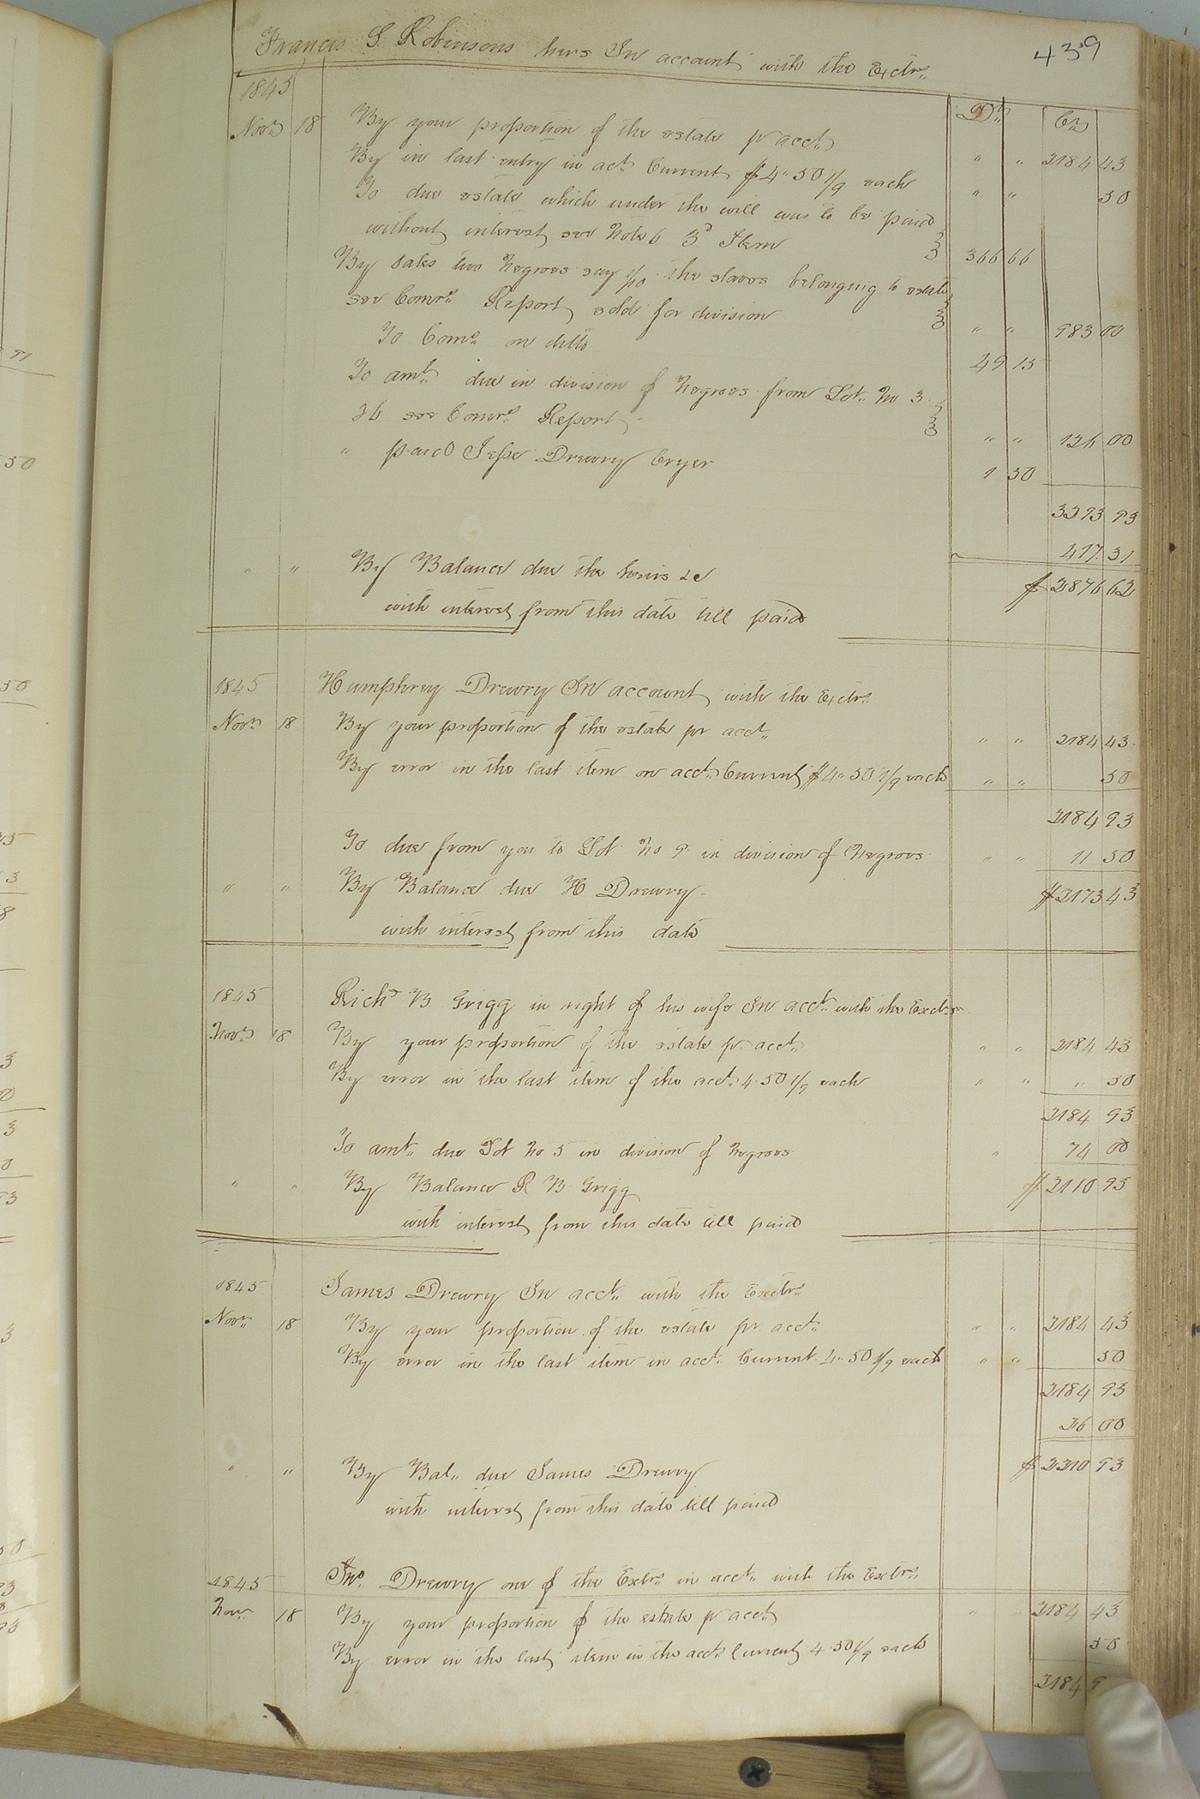 439
Francis S Robinsons heirs In account with the Extr.
1845 Dr. Cr.
Nov. 18 By your proportion of the estate pr acct. " " 2184 43
By in last entry in act. Current $4"50 1/9 each " " 50
To due estate which under the will was to be paid
without interest see Note 6 3d Item 366 66
By sales two Negroes say 1/10 the slaves belonging to estate
see Comrs. Report sold for division " " 983 00
To Coms. on ditto 49 15
To amt. due in division of Negroes from Lot. No 3
36 see Comrs. Report " " 126 00
" paid Jesse Drewry Cryer 1 50
3393 93
417 31
" " By Balance due the heirs &c $2876 62
with interest from this date till paid
1845 Humphrey Drewry In account with the Extr.
Nov. 18 By your proportion of the estate pr acct. " " 2184 43
By error in the last item on acct. Current $4"50 1/9 each " " 50
2184 93
To due from you to Lot No 9 in division of Negroes " " 11 50
" " By Balance due H Drewry $2173 43
with interest from this date
1845 Richd. B Grigg in right of his wife In acct. with the Exctr.
Nov. 18 By your proportion of the estate pr acct. " " 2184 43
By error in the last item of the acct. 4.50 1/9 each " " " 50
2184 93
To amt. due Lot No 5 in division of Negroes " 74 00
" " By Balance R B Grigg $2110 95
with interest from this date till paid
1845 James Drewry In acct. with the Exctr.
Nov. 18 By your proportion of the estate pr acct. " " 2184 43
By error in the last item in acct. Current 4"50 1/9 each " " 50
2184 93
26 00
" " By Bal. due James Drewry $2210 93
with interest from this date till paid
1845 Jno. Drewry one of the Extrs. in acct. with the Extr.
Nov. 18 By your proportion of the estate pr acct " 2184 43
By error in the last item in the acct. Current 4.50 1/9 each 50
2184 9